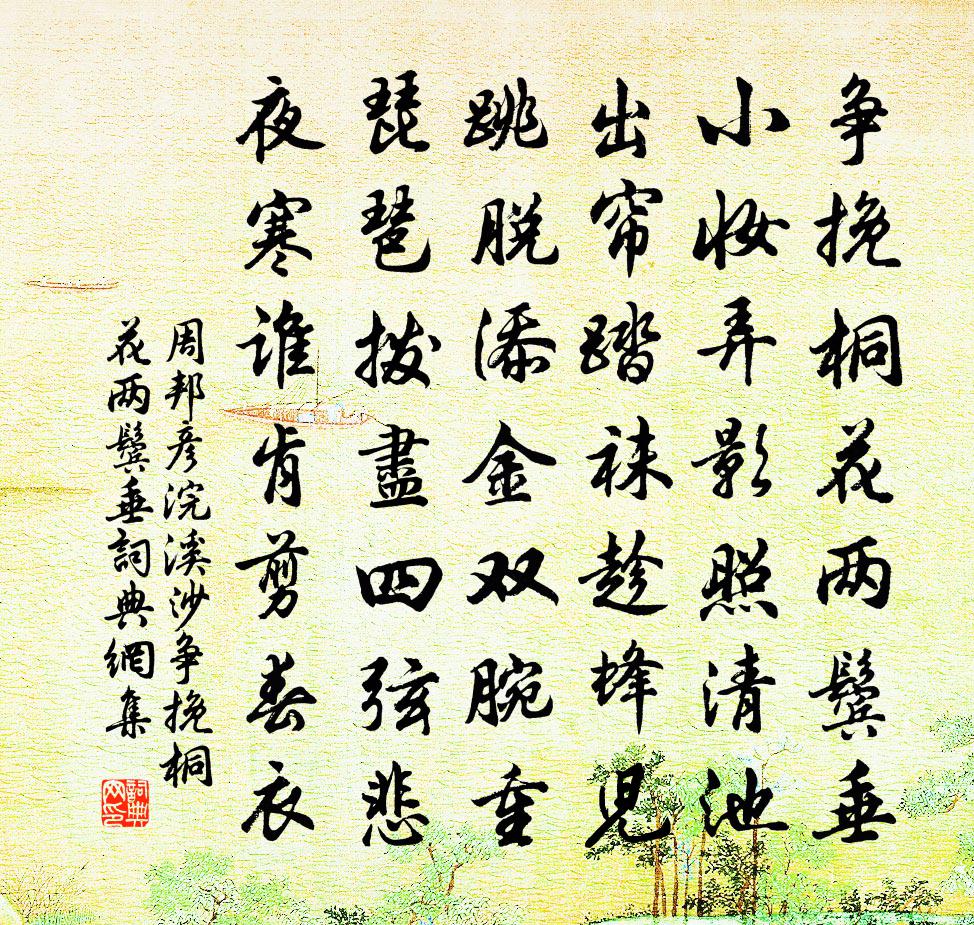 争挽桐花两鬓垂
小妆弄影照清池
出帘踏袜趁蜂儿
跳脱添金双腕重
琵琶拨盡四弦悲
夜寒谁肯剪春衣
周邦彦浣溪沙争挽桐
花两鬓垂詞典網集
詞典
网印